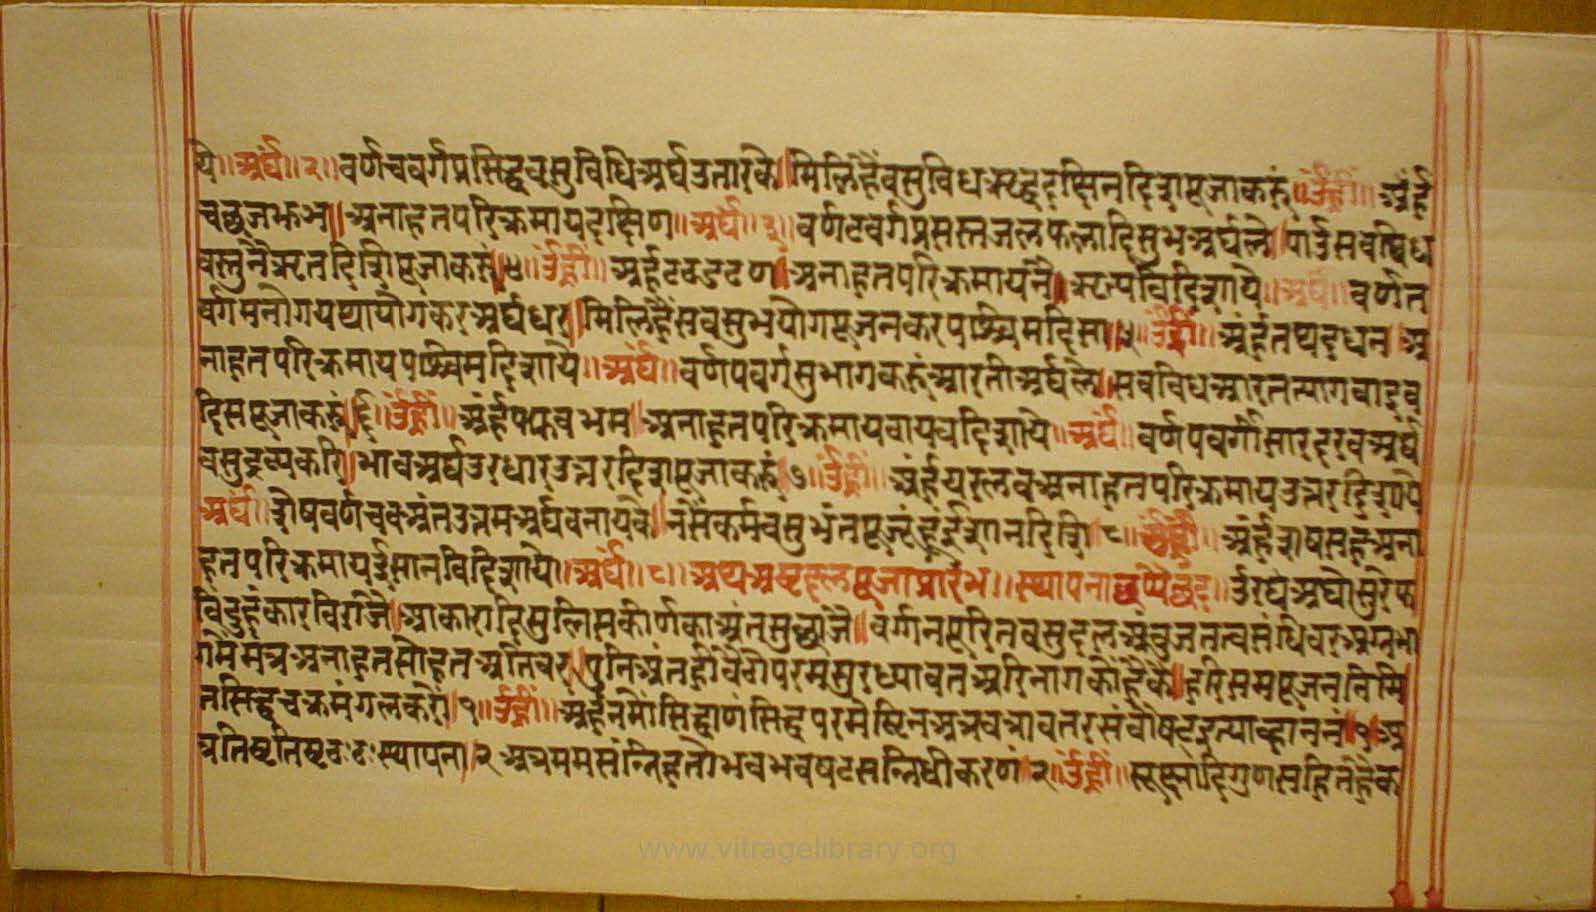 ये॥अर्घं॥२॥वर्णचवर्गप्रसिद्धवसुविधिअर्घउतारिके॥मिलिहैवसुविधऋद्धदक्षिनदिशिपूजाकरुं॥उँह्रीं॥अर्हं
चछजझञ॥अनाहतपरिक्रमायदक्षिण॥अर्घं॥३॥वर्णटवर्गप्रसस्तजलफलादिसुभअर्घले॥पाउँसवविध
वस्तुनैऋतदिशिपूजाकरुं॥४॥उँह्रीं॥अर्हंटठडढण॥अनाहतपरिक्रमाय वर्णत
वर्गमनोगयथायोगकरअर्घधर॥मिलिहैंसवसुभयोगपूजनकरपश्चिमदिसा॥५॥उँह्रीं॥अर्हंतथदधन॥अ
नाहतपरिक्रमायपश्चिमदिशाये॥अर्घं॥वर्णपवर्गसुभागकरुंआरतीअर्घले॥सवविधआरतत्यागवाइव
दिसपूजाकरुं॥६॥उँह्रीं॥अर्हंपफबभम॥अनाहतपरिक्रमायवायवदिशाये॥अर्घं॥वर्ण सारदरवअर्घ
वसुद्रव्यकरि॥भावअर्घउरधारउत्तरदिशिपूजाकरुं॥७॥उँह्रीं॥अर्हंयरलवअनाहतपरिक्रमायउत्तरदिशाये
अर्घं॥शेषवर्णचवअंतउत्तमअर्घवनायके॥नसेकर्मवसुभंतपूजूंहूंईशानदिशि॥८॥उँह्रीं॥अर्हंशषसहअना
हतपरिक्रमायईसानविदिशाये॥अर्घं॥८॥अथअष्टदलपूजाप्रारंभ॥स्थापनाछप्पैछंद॥उरधअधोसुरेफ
विंदुहंकारविराजै॥अकारादिसुलिप्तकर्णिकाअंतसुछाजै॥वर्गनपूरितवसुदलअंवुजतत्वसंधिवरअग्रभा
गमेमंत्रअनाहतसोहतअतिवर॥पुनिअंतह्रींवेढोपरमसुरध्यावतअरिनागको॥ह्वैकेहरिसमपूजननिमि
तसिद्धचक्रमंगलकरो॥१॥उँह्रीं॥अर्हंनमोसिद्धाणंसिद्धपरमेष्टिनअत्रअवतरावतरसंवौषटइत्याव्हाननं॥१॥अ
त्रतिष्ठतिष्ठठःठःस्थापनं॥२॥अत्रममसंन्निहतोभवभवषटसन्निधीकरणं॥३॥उँह्रीं॥सूक्ष्मादिगुणसहितहैक
www.vitragelibrary.org